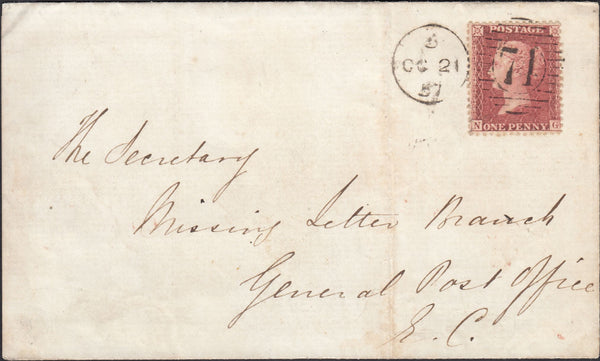 6
OC 21
57
POSTAGE
71
N ONE PENNY G
The Secretary
Missing Letter Branch
General Post Office
E. C.